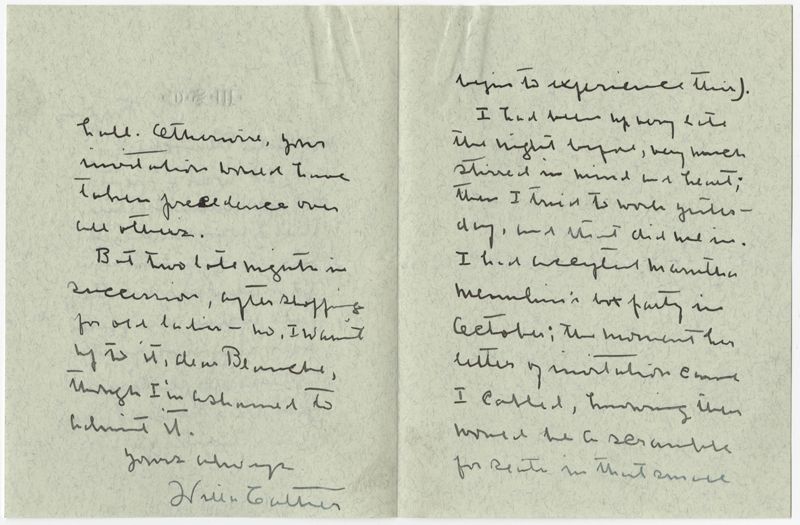 begin to experience this).
I had been up very late
the night before, very much
stirred in mind and heart;
then I tried to work yester-
day, and that did me in.
I had accepted Marutha
Menuhin's box party in
October; the moment her
letter of invitation came
I cabled, knowing there
would be a scramble
for seats in that small
hall. Otherwise, your
invitation would have
taken precedence over
all others.
But two late nights in
succession, after shopping
for old ladies - no, I wasn't
up to it, dear Blanche,
though I'm ashamed to
admit it.
Yours always
Willa Cather